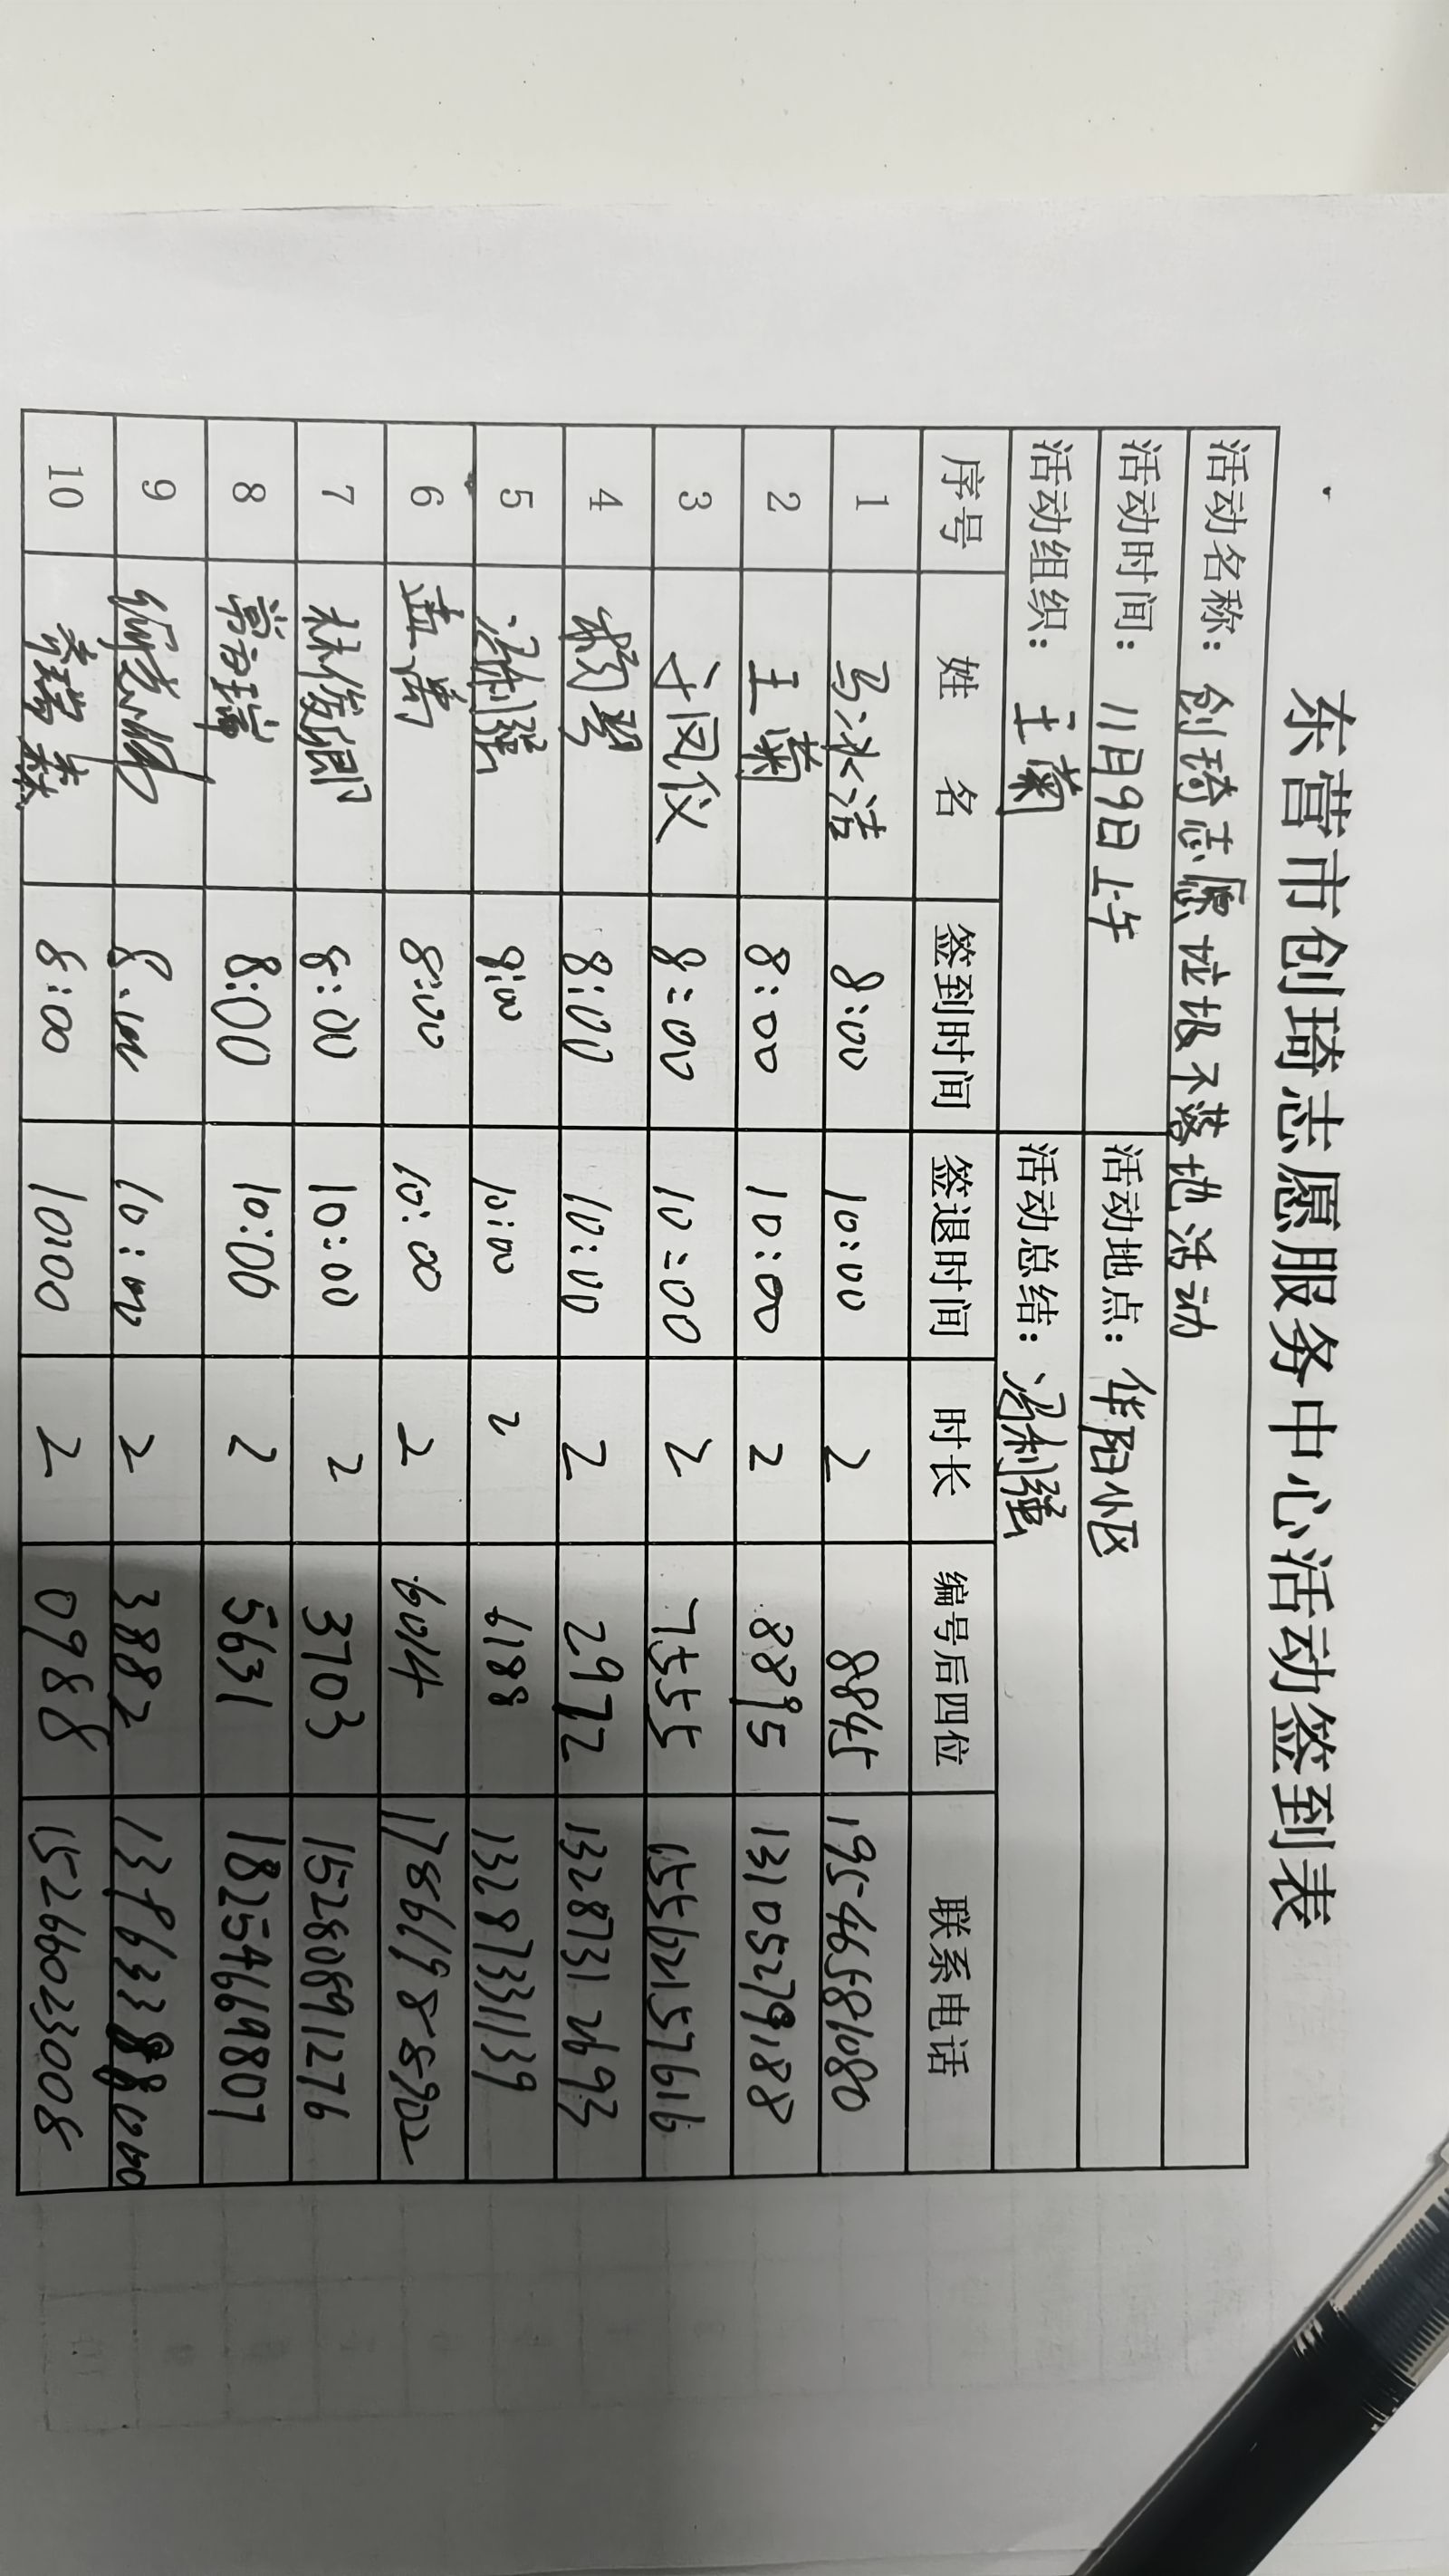 东营市创琦志愿服务中心活动签到表
活动名称：创琦志愿垃圾不落地活动
活动时间：11月9日上午 活动地点：华阳小区
活动组织：王菊 活动总结：冯利强
序号 姓名 签到时间 签退时间 时长 编号后四位 联系电话
1 马冰洁 8:00 10:00 2 8845 19546581080
2 王菊 8:00 10:00 2 8895 13105279188
3 于凤仪 8:00 10:00 2 7555 15562157616
4 杨琴 8:00 10:00 2 2972 13287312693
5 冯利强 8:00 10:00 2 6188 13287331139
6 8:00 10:00 2 6014 17866198902
7 林俊卿 8:00 10:00 2 3703 15280891276
8 8:00 10:00 2 5631 18254669807
9 8:00 10:00 2 3882
10 8:00 10:00 2 0988 15266023008